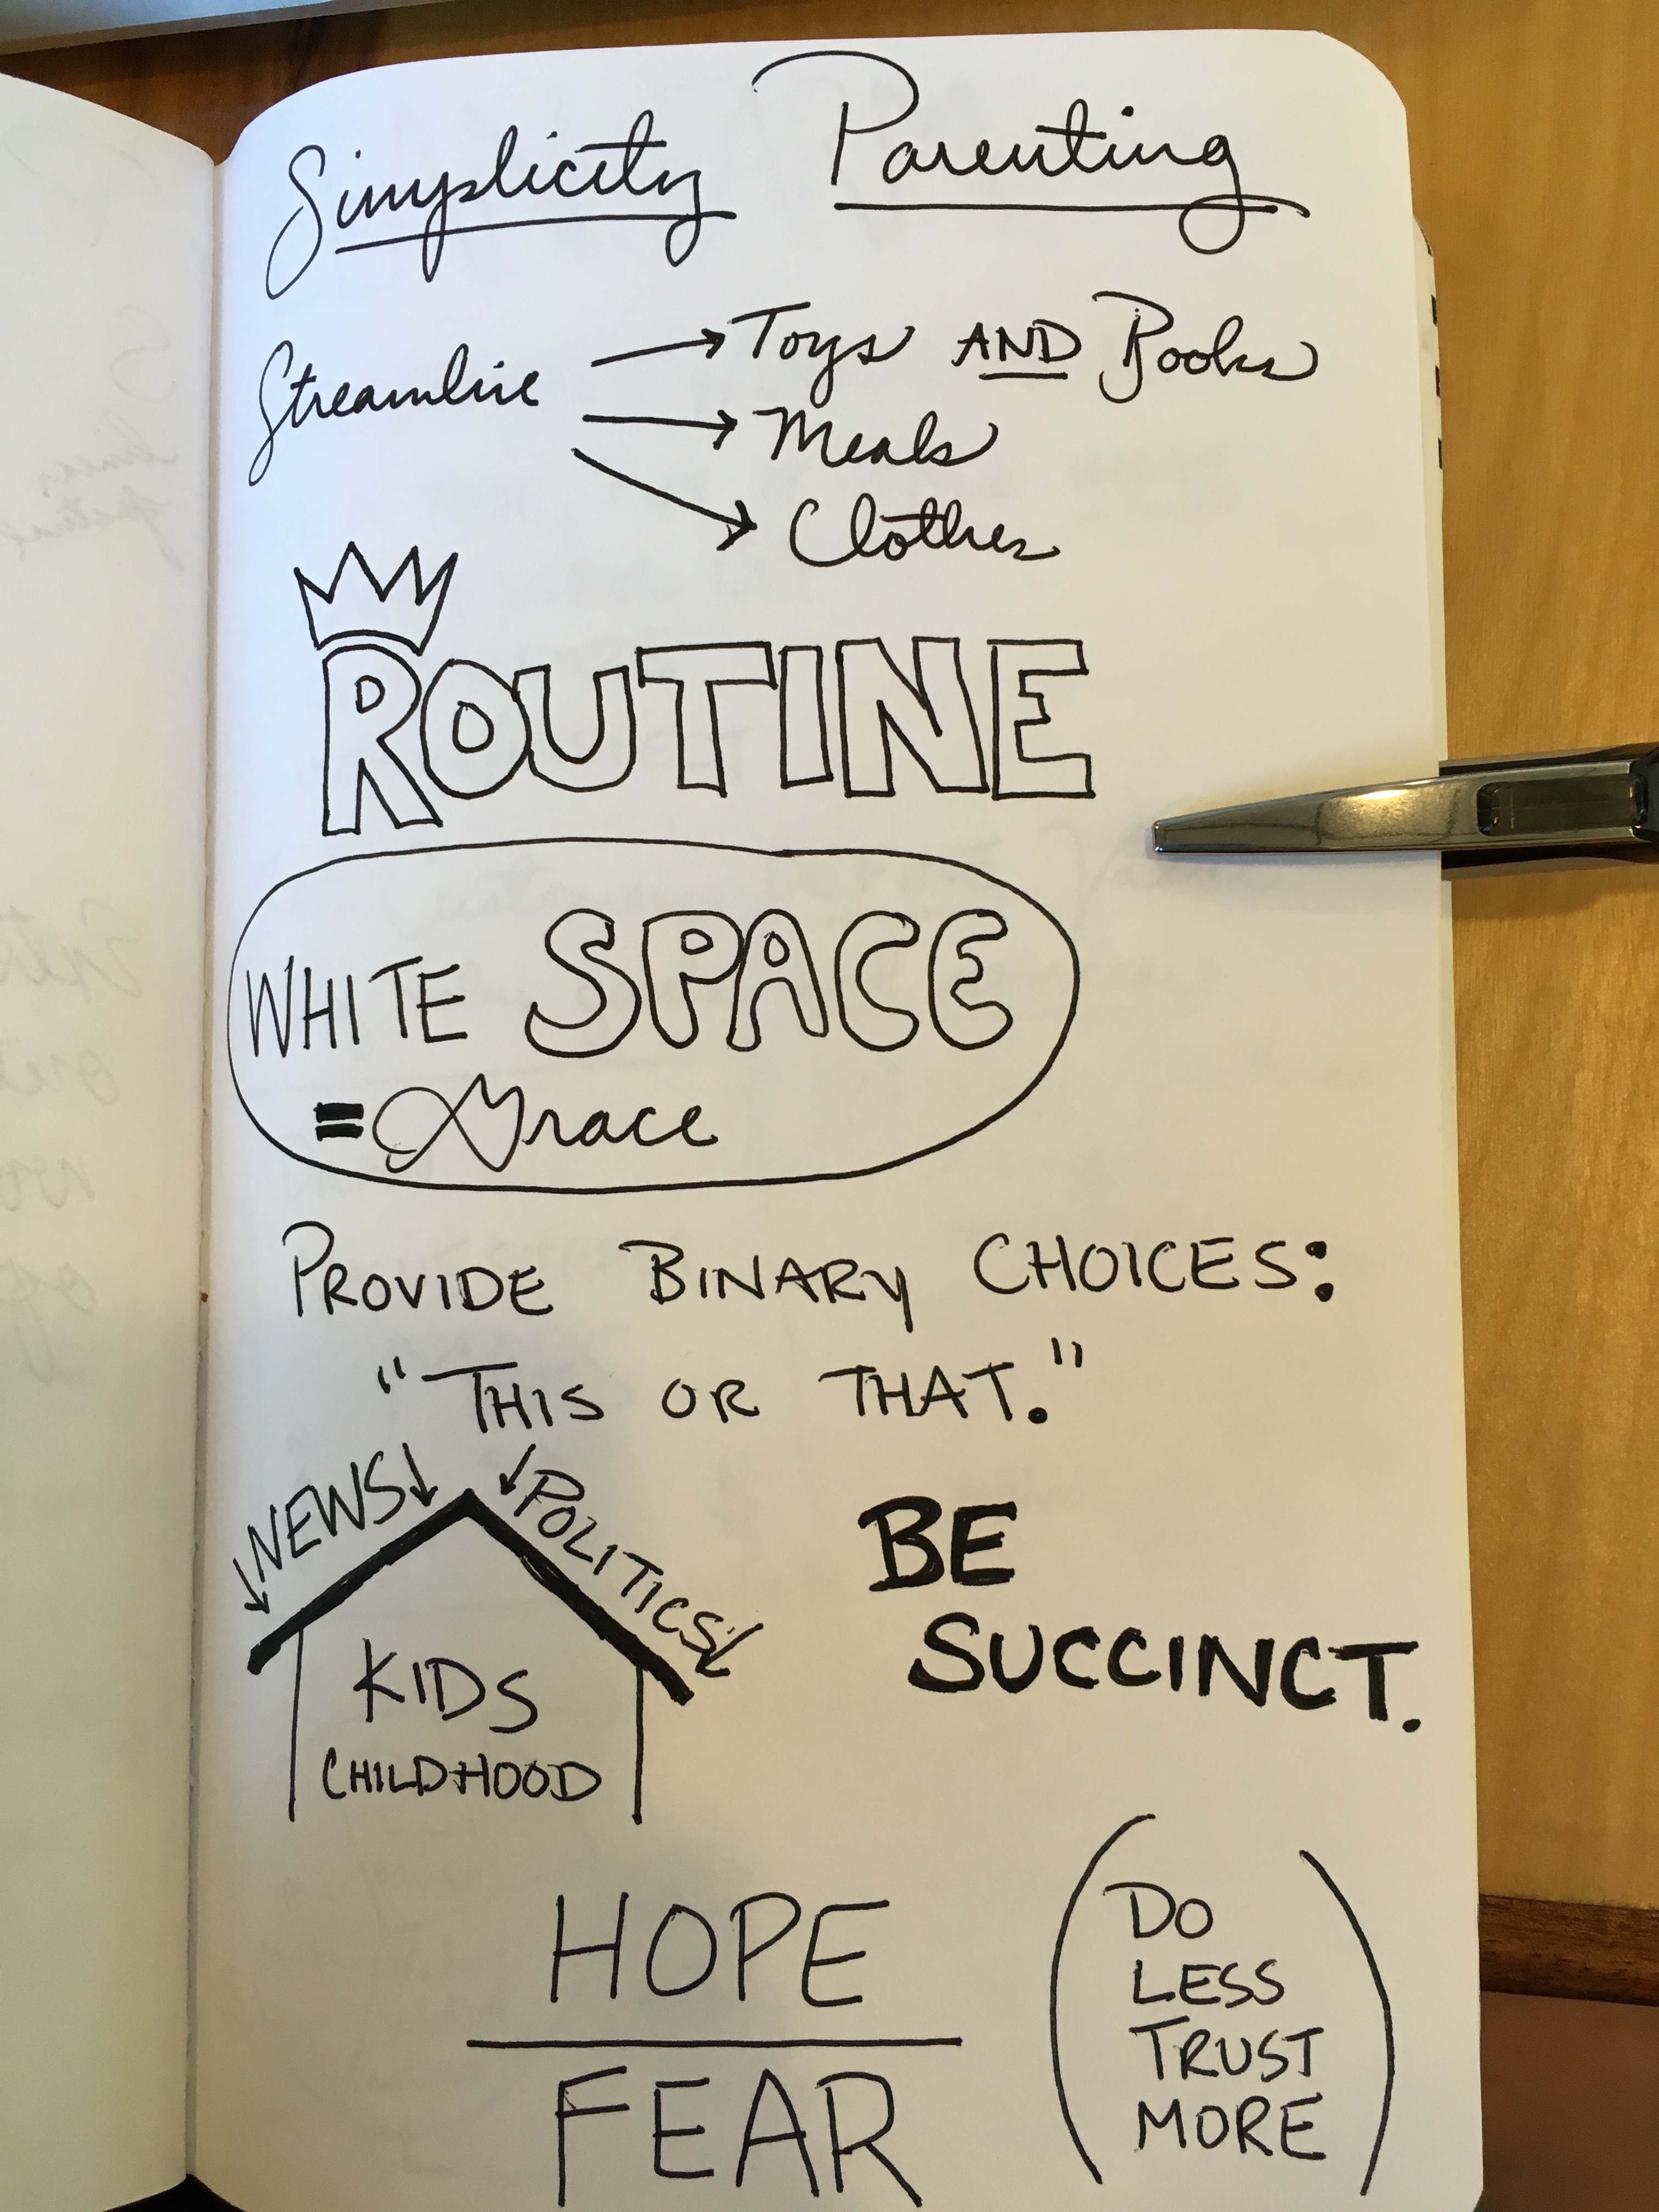 Simplicity Parenting
Streamline → Toys AND Books
→ Meals
→ Clothes
ROUTINE
WHITE SPACE
= Grace
PROVIDE BINARY CHOICES:
"THIS OR THAT."
↓NEWS↓
↓POLITICS↓
KIDS
CHILDHOOD
BE
SUCCINCT.
HOPE
FEAR
DO
LESS
TRUST
MORE